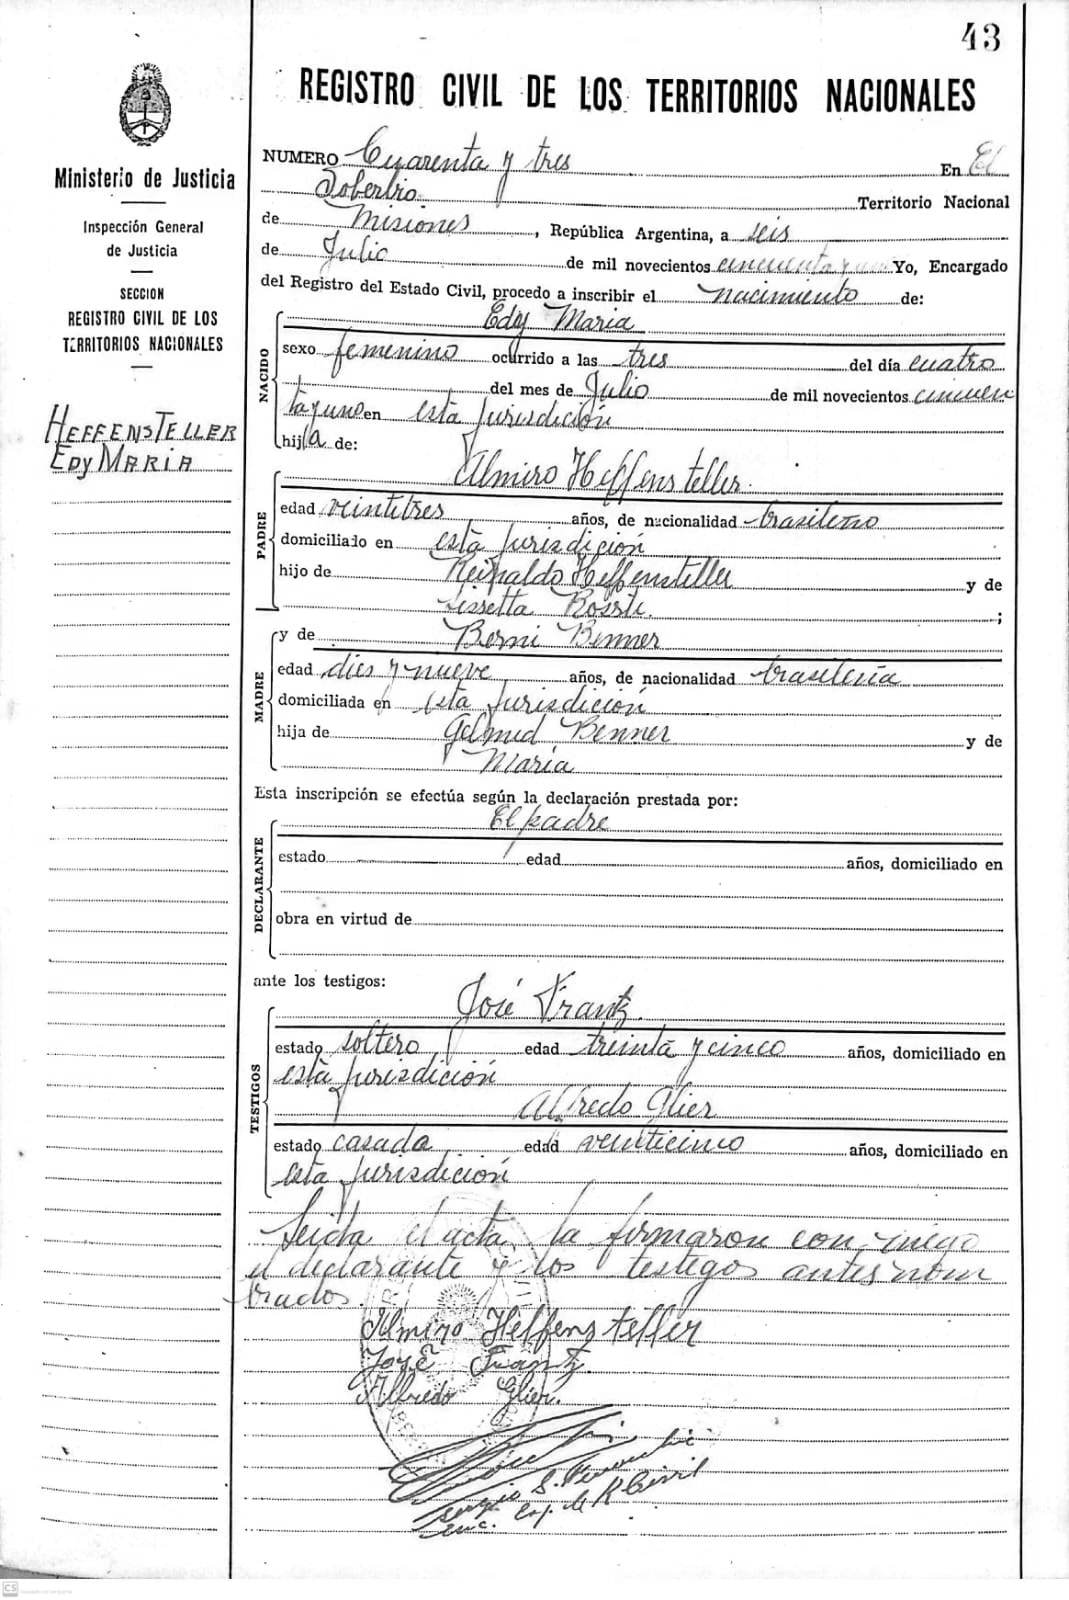 43
REGISTRO CIVIL DE LOS TERRITORIOS NACIONALES
Ministerio de Justicia
Inspección General
de Justicia
SECCION
REGISTRO CIVIL DE LOS
TERRITORIOS NACIONALES
HEFFENSTELLER
EDY MARIA
NUMERO Cuarenta y tres En El
Soberbio Territorio Nacional
de Misiones, República Argentina, a seis
de Julio de mil novecientos cincuenta y uno Yo, Encargado
del Registro del Estado Civil, procedo a inscribir el nacimiento de:
NACIDO
Edy Maria
sexo femenino ocurrido a las tres del día cuatro
del mes de Julio de mil novecientos cincuen
ta y uno en esta jurisdición
hija de:
PADRE
Almiro Heffensteller
edad veintetres años, de nacionalidad brasileño
domiciliado en esta jurisdición
hijo de Reinaldo Heffensteller y de
Lissetta ;
MADRE
y de Berni Benner
edad dies y nueve años, de nacionalidad brasileña
domiciliada en esta jurisdición
hija de Gelmud Benner y de
Maria
Esta inscripción se efectúa según la declaración prestada por:
DECLARANTE
El padre
estado edad años, domiciliado en
obra en virtud de
ante los testigos:
TESTIGOS
José Frantz.
estado soltero edad treinta y cinco años, domiciliado en
esta jurisdición
Alfredo Glier
estado casado edad veinticinco años, domiciliado en
esta jurisdición
Leida el acta la firmaron con-migo
el declarante y los testegos antes nom
brados.
Almiro Heffensteller
José Frantz.
Alfredo Glier.
Sergio S.
Enc. R Civil
CS